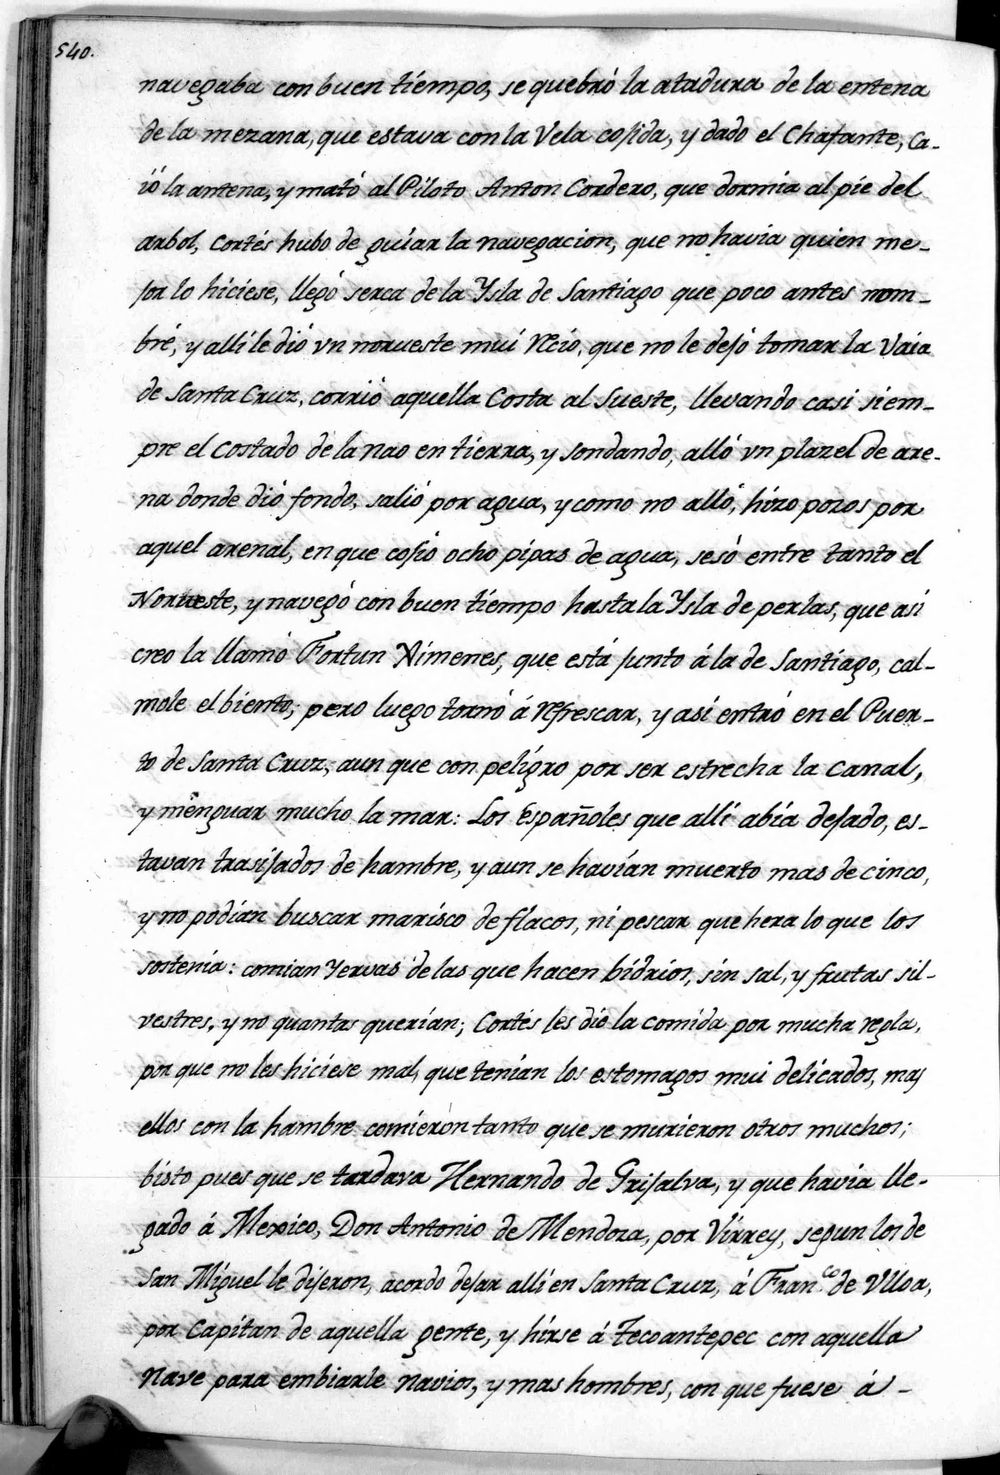 540.
navegaba con buen tiempo, se quebró la atadura de la entena
de la mezana, que estava con la Vela cojida, y dado el Chafante, Ca-
ió la antena, y mató al Piloto Anton Cordero, que dormia al pie del
arbol, Cortés hubo de guiar la navegacion, que no havia quien me-
jor lo hiciese, llegó serca de la Ysla de Santiago que poco antes nom-
bré, y alli le dió vn norueste mui recio, que no le dejó tomar la Vaia
de Santa Cruz, corrió aquella Costa al Sueste, llevando casi siem-
pre el Costado de la nao en tierra, y sondando, alló vn plazel de are-
na donde dió fondo, salió por agua, y como no alló, hizo pozos por
aquel arenal, en que cojió ocho pipas de agua, sesó entre tanto el
Norueste, y navegó con buen tiempo hasta la Ysla de perlas, que asi
creo la llamó Fortun Ximenes, que está junto á la de Santiago, cal-
mole el biento; pero luego tornó á refrescar, y asi entró en el Puer-
to de Santa Cruz, aun que con peligro por ser estrecha la canal,
y menguar mucho la mar: Los Españoles que alli abia dejado, es-
tavan trasijados de hambre, y aun se havian muerto mas de cinco,
y no podian buscar marisco de flacos, ni pescar que hera lo que los
sostenia: comian Yervas de las que hacen bidrios, sin sal, y frutas sil-
vestres, y no quantas querian; Cortés les dió la comida por mucha regla,
por que no les hiciese mal, que tenian los estomagos mui delicados, mas
ellos con la hambre comieron tanto que se murieron otros muchos;
bisto pues que se tardava Hernando de Grijalva, y que havia lle-
gado á Mexico, Don Antonio de Mendoza, por Virrey, segun los de
San Miguel le dijeron, acordo dejar alli en Santa Cruz, á Fran.co de Vlloa,
por Capitan de aquella gente, y hirse á Tecoantepec con aquella
Nave para embiarle navios, y mas hombres, con que fuese á -